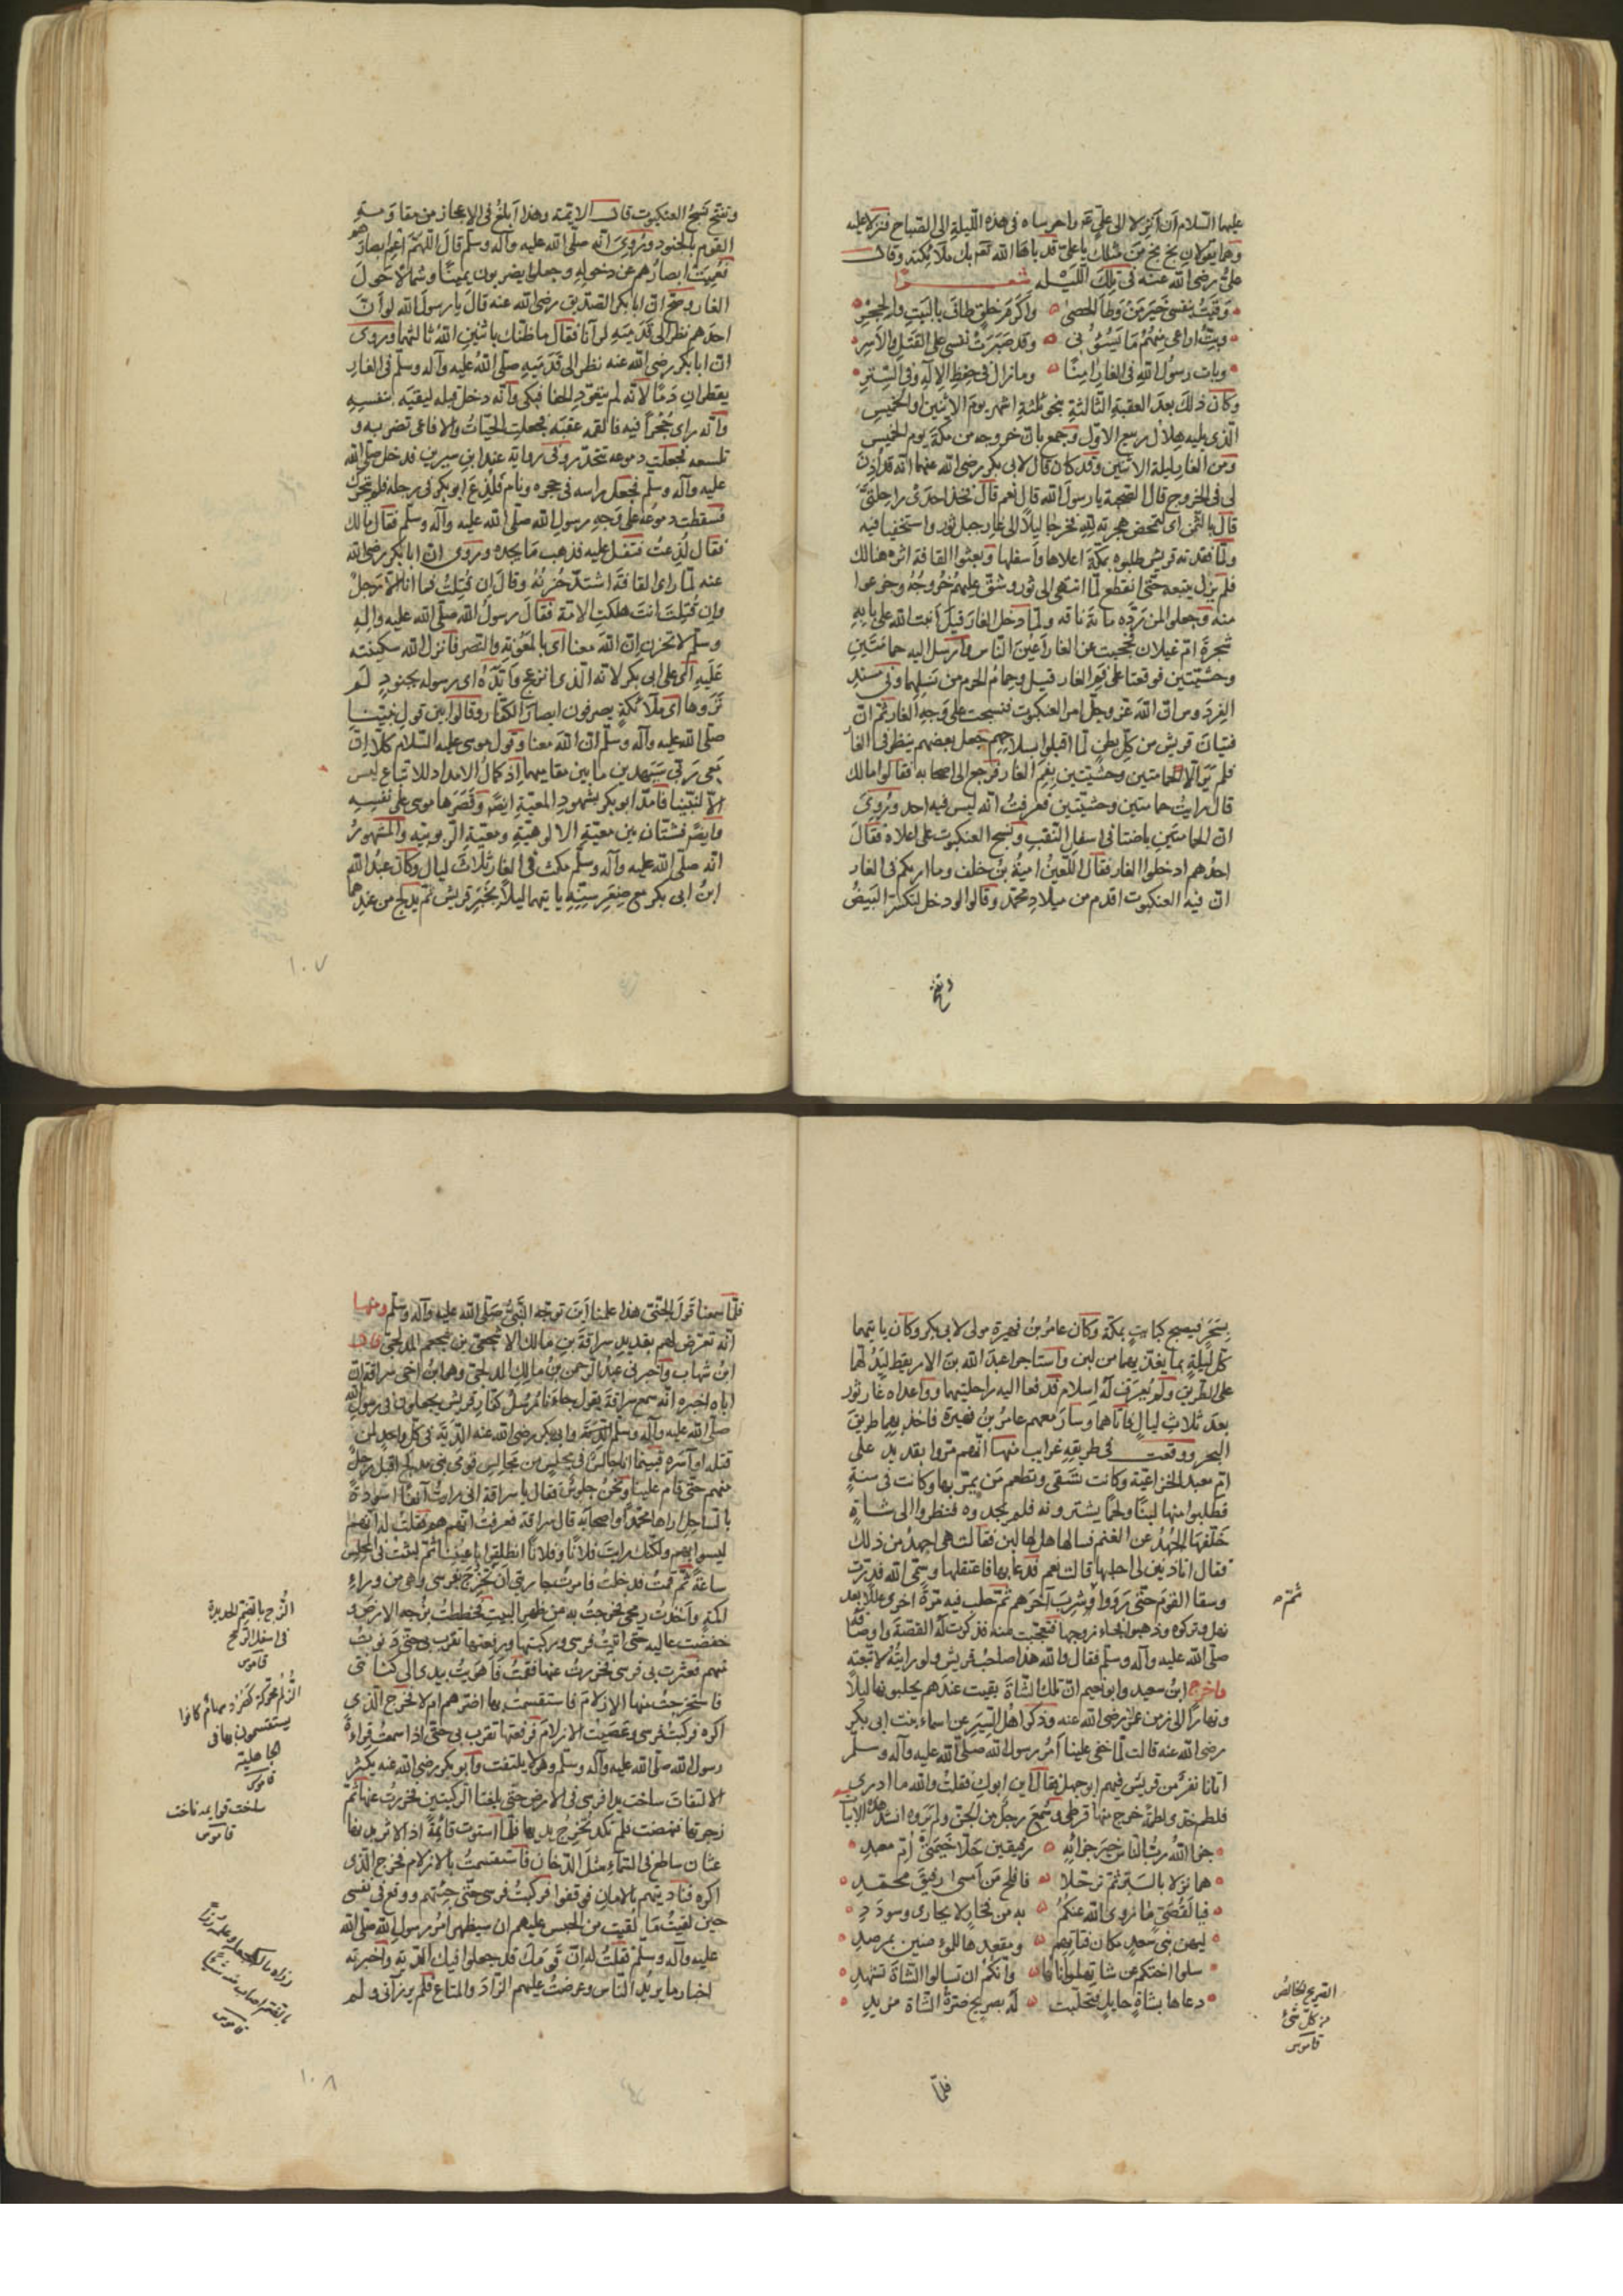 عليهما السّلام أن أنزلا إلى عليّ واحرساه في هذه الليلة إلى الصّباح فنزلا عليه
وهما يقولان بخ بخ من مثلك يا عليّ قد باها الله تعم بك ملائكته وقال
عليّ رضي الله عنه في تلك الليلة شعرًا
وقيتُ بنفسي خير من وطأ الحصى وأكرم خلق طاف بالبيت والحجر
وبتّ اراعي منهم ما يسوُني وقد صبرت نفسي على القتل والأسر
وبات رسول الله في الغار امنًا وما زال في حفظ الإله وفي السّتر
وكان ذلك بعد العقبة الثّالثة بنحو ثلثة اشهر يوم الاثنين او الخميس
الّذي يليه هلال ربيع الاوّل وجمع بانّ خروجه من مكّة يوم الخميس
ومن الغار ليلة الاثنين وقد كان قال لابي بكر رضي الله عنهما انّه قد أُذِن
لي في الخروج قال الصّحبة يا رسول الله قال نعم قال فخذ احدى راحلتيّ
قال بالثّمن أي لتمحض هجرته لله فخرجا ليلاً إلى غار جبل ثور واستخفيا فيه
ولمّا فقدته قريش طلبوه بمكّة اعلاها وأسفلها وبعثوا القافة اثره هنالك
فلم يزل يتبعه حتّى انقطع لمّا انتهى إلى ثور وشقّ عليهم خروجه وجزعوا
منه وجعلوا لمن ردّه مائة ناقة ولمّا دخل الغار قيل أنبت الله على بابه
شجرة امّ غيلان فحجبت عن الغار أعين النّاس وأرسل اليه حمامتين
وحشيّتين فوقعتا على فم الغار قيل وحمام الحرم من نسلهما وفي مسند
الفردوس انّ الله عزّ وجلّ امر العنكبوت فنسجت على وجه الغار ثمّ انّ
فتيان قريش من كلّ بطن لمّا اقبلوا بسلاحهم جعل بعضهم ينظر في الغار
فلم ير الّا حمامتين وحشيّتين بفم الغار فرجع إلى اصحابه فقالوا مالك
قال رايت حمامتين وحشيّتين فعرفت انّه ليس فيه احد ورُوي
انّ الحمامتين باضتا في اسفل النّقب ونسج العنكبوت على اعلاه فقال
احدهم ادخلوا الغار فقال اللّعين اميّة بن خلف وما اربكم في الغار
انّ فيه العنكبوت اقدم من ميلاد محمّد وقالوا لو دخل لتكسّر البيض
وتفسّخ
وتفسّخ نسج العنكبوت قال الايمة وهذا أبلغ في الاعجاز من مقاومة
القوم بالجنود ورُوي انّه صلّى الله عليه وآله وسلّم قال اللّهمّ أعم ابصارهم
فعميت ابصارهم عن دخوله وجعلوا يضربون يمينًا وشمالاً حول
الغار وصحّ انّ ابا بكر الصّديق رضي الله عنه قال يا رسول الله لو أنّ
احدهم نظر إلى قدميه لرآنا فقال ما ظنّك باثنين الله ثالثهما وروى
انّ ابا بكر رضي الله عنه نظر إلى قدميه صلّى الله عليه وآله وسلّم في الغار
يقطران دمًا لانّه لم يتعوّد الحفا فبكى وانّه دخل قبله ليقيه بنفسه
وانّه راى جُحرًا فيه فالقمه عقبه فجعلت الحيّات والافاعي تضربه و
تلسعه فجعلت دموعه تتحدّر وفي رواية عند ابن سيرين فدخل صلّى الله
عليه وآله وسلّم فجعل راسه في حجره ونام فلُدغ ابو بكر في رجله فلم يتحرّك
فسقطت دموعه على وجه رسول الله صلّى الله عليه وآله وسلّم فقال مالك
فقال لُدغتُ فتفل عليه فذهب ما يجده وروى انّ ابا بكر رضي الله
عنه لمّا راى القافة اشتدّ حزنه وقال ان قُتلتُ فما انا الّا رجل
وان قُتلتَ انت هلكت الامّة فقال رسول الله صلّى الله عليه واله
وسلّم لا تحزن انّ الله معنا أي بالمعونة والنّصر فانزل الله سكينته
عليه أي على ابي بكر لانّه الّذي انزعج وأيّده أي رسوله بجنود لم
تروها أي ملائكة يصرفون ابصار الكفّار وقالوا بين قول نبيّنا
صلّى الله عليه وآله وسلّم انّ الله معنا وقول موسى عليه السّلام كلّا إنّ
معي ربّي سيهدين ما بين مقاميهما اذ كمال الامداد للاتباع ليس
الّا لنبيّنا فامدّ ابو بكر بشهود المعيّة ايضًا وقصرها موسى على نفسه
وايضًا فشتّان بين معيّة الالوهيّة ومعيّة الرّبوبيّة والمشهور
انّه صلّى الله عليه وآله وسلّم مكث في الغار ثلاث ليال وكان عبد الله
ابن ابي بكر مع صغر سنّه ياتيهما ليلاً بخبر قريش ثمّ يدلج من عندهما
١٠٧
بسحر فيصبح كبايت بمكّة وكان عامر بن فهيرة مولى لابي بكر وكان ياتيهما
كلّ ليلة بما يغذيهما من لبن واستاجرا عبد الله بن الاريقط ليدلّهما
على الطّريق ولم يُعرف له إسلام فدفعا اليه راحلتيهما وواعداه غار ثور
بعد ثلاث ليال فاتاهما وسار معهم عامر بن فهيرة فاخذ بهما طريق
البحر ووقعت في طريقه غرايب منها انّهم مرّوا بقديد على
امّ معبد الخزاعيّة وكانت تسقى وتطعم من يمرّ بها وكانت في سنةٍ
فطلبوا منها لبنًا ولحمًا يشترونه فلم يجدوه فنظروا إلى شاةٍ
خلّفها الجُهد عن الغنم فسالها هل لها لبن فقالت هي اجهد من ذلك
فقال اتاذنين لي احلبها قالت نعم فدعا بها فاعتقلها وسمّى الله فدرّت
وسقا القوم حتّى رووا وشرب آخرهم ثمّ حلب فيه مرّة اخرى عللاً بعد
نهل وتركوه وذهبوا فجاء زوجها فتعجّبت منه فذكرت له القصّة واوصافه
صلّى الله عليه وآله وسلّم فقال والله هذا صاحب قريش ولو رايته لاتّبعته
واخرج ابن سعيد وابو نعيم انّ تلك الشّاة بقيت عندهم يحلبونها ليلاً
ونهارًا إلى زمن عمر رضي الله عنه وذكر اهل السّير عن اسماء بنت ابي بكر
رضي الله عنه قالت لمّا خفي علينا أمر رسول الله صلّى الله عليه وآله وسلّم
اتانا نفر من قريش فيهم ابو جهل فقال اين ابوك فقلت والله ما ادري
فلطم خدّي لطمة خرج منها قرطي وسُمع رجل من الجنّ ولم يروه انشد هذه الأبيات
جزا الله ربّ النّاس خير جزائه رفيقين حلّا خيمتي أمّ معبد
هما نزلا بالبرّ ثمّ ترحّلا فافلح من أمسى رفيق محمّد
فيا لقصيّ ما زوى الله عنكم به من فخار لا يجارى وسودد
ليهن بني سعد مكان فتاتهم ومقعدها للمؤمنين بمرصد
سلوا اختكم عن شاتها وانائها وانّكم ان تسالوا الشّاة تشهد
دعاها بشاة حايل فتحلّبت له بصريح ضرّة الشّاة مزبد
ثمّ
الصّريح الخالص
من كلّ شئ
قاموس
فلمّا
فلمّا سمعنا قول الجنّي هذا علمنا أين توجّه النّبي صلّى الله عليه وآله وسلّم ومنها
انّه تعرّض لهم بقديد سراقة بن مالك بن جعشم المدلجي قال
ابن شهاب واخبرني عبد الرّحمن بن مالك المدلجي وهو ابن اخي سراقة انّ
اباه اخبره انّه سمع سراقة يقول جاءنا رسل كفّار قريش يجعلون في رسول الله
صلّى الله عليه وآله وسلّم وابي بكر رضي الله عنه الدّية في كلّ واحد لمن
قتله او آسره فبينما انا جالس في مجلس من مجالس قومي بني مدلج اقبل رجل
منهم حتّى قام علينا ونحن جلوس فقال يا سراقة انّي رايت آنفًا اسودة
بالسّاحل اراها محمّدًا واصحابه قال سراقة فعرفت انّهم هم فقلت له انّهم
ليسوا بهم ولكنّك رايت فلانًا وفلانًا انطلقوا باعيننا ثمّ لبثت في المجلس
ساعة ثمّ قمت فدخلت فامرت جاريتي أن تخرج بفرسي وهي من وراء
اكمةٍ وأخذت رمحي فخرجت به من ظهر البيت فخططت بزجّه الارض و
خفضت عاليه حتّى اتيت فرسي فركبتها ورفعتها تقرب بي حتّى دنوت
منهم فعثرت بي فرسي فخررت عنها فقمت فأهويت بيدي إلى كنانتي
فاستخرجت منها الازلام فاستقسمت بها اضرّهم ام لا فخرج الّذي
اكره فركبت فرسي وعصيت الازلام فرفعتها تقرب بي حتّى اذا سمعت قراءة
رسول الله صلّى الله عليه وآله وسلّم وهو لا يلتفت وأبو بكر رضي الله عنه يكثر
الالتفات ساخت يدا فرسي في الارض حتّى بلغتا الرّكبتين فخررت عنها ثمّ
زجرتها فنهضت فلم تكد تُخرج يديها فلمّا استوت قائمة اذ الاثر يديها
عثان ساطع في السّماء مثل الدّخان فاستقسمت بالازلام فخرج الّذي
اكره فناديتهم بالامان فوقفوا فركبت فرسي حتّى جئتهم ووقع في نفسي
حين لقيت ما لقيت من الحبس عليهم ان سيظهر امر رسول الله صلّى الله
عليه وآله وسلّم فقلت له انّ قومك قد جعلوا فيك الدّية واخبرته
اخبار ما يريد النّاس وعرضت عليهم الزّاد والمتاع فلم يرزآني ولم
الزّج بالضّم الحديدة
في اسفل الرّمح
قاموس
الزُّلم محرّكة كصُرد سهام كانوا
يستقسمون بها في
الجاهلية
قاموس
ساخت قوايمه ثاخت
قاموس
رزاه ماله كجعله وعلمه رزءًا
بالضّمّ اصاب منه شيئًا
قاموس
١٠٨